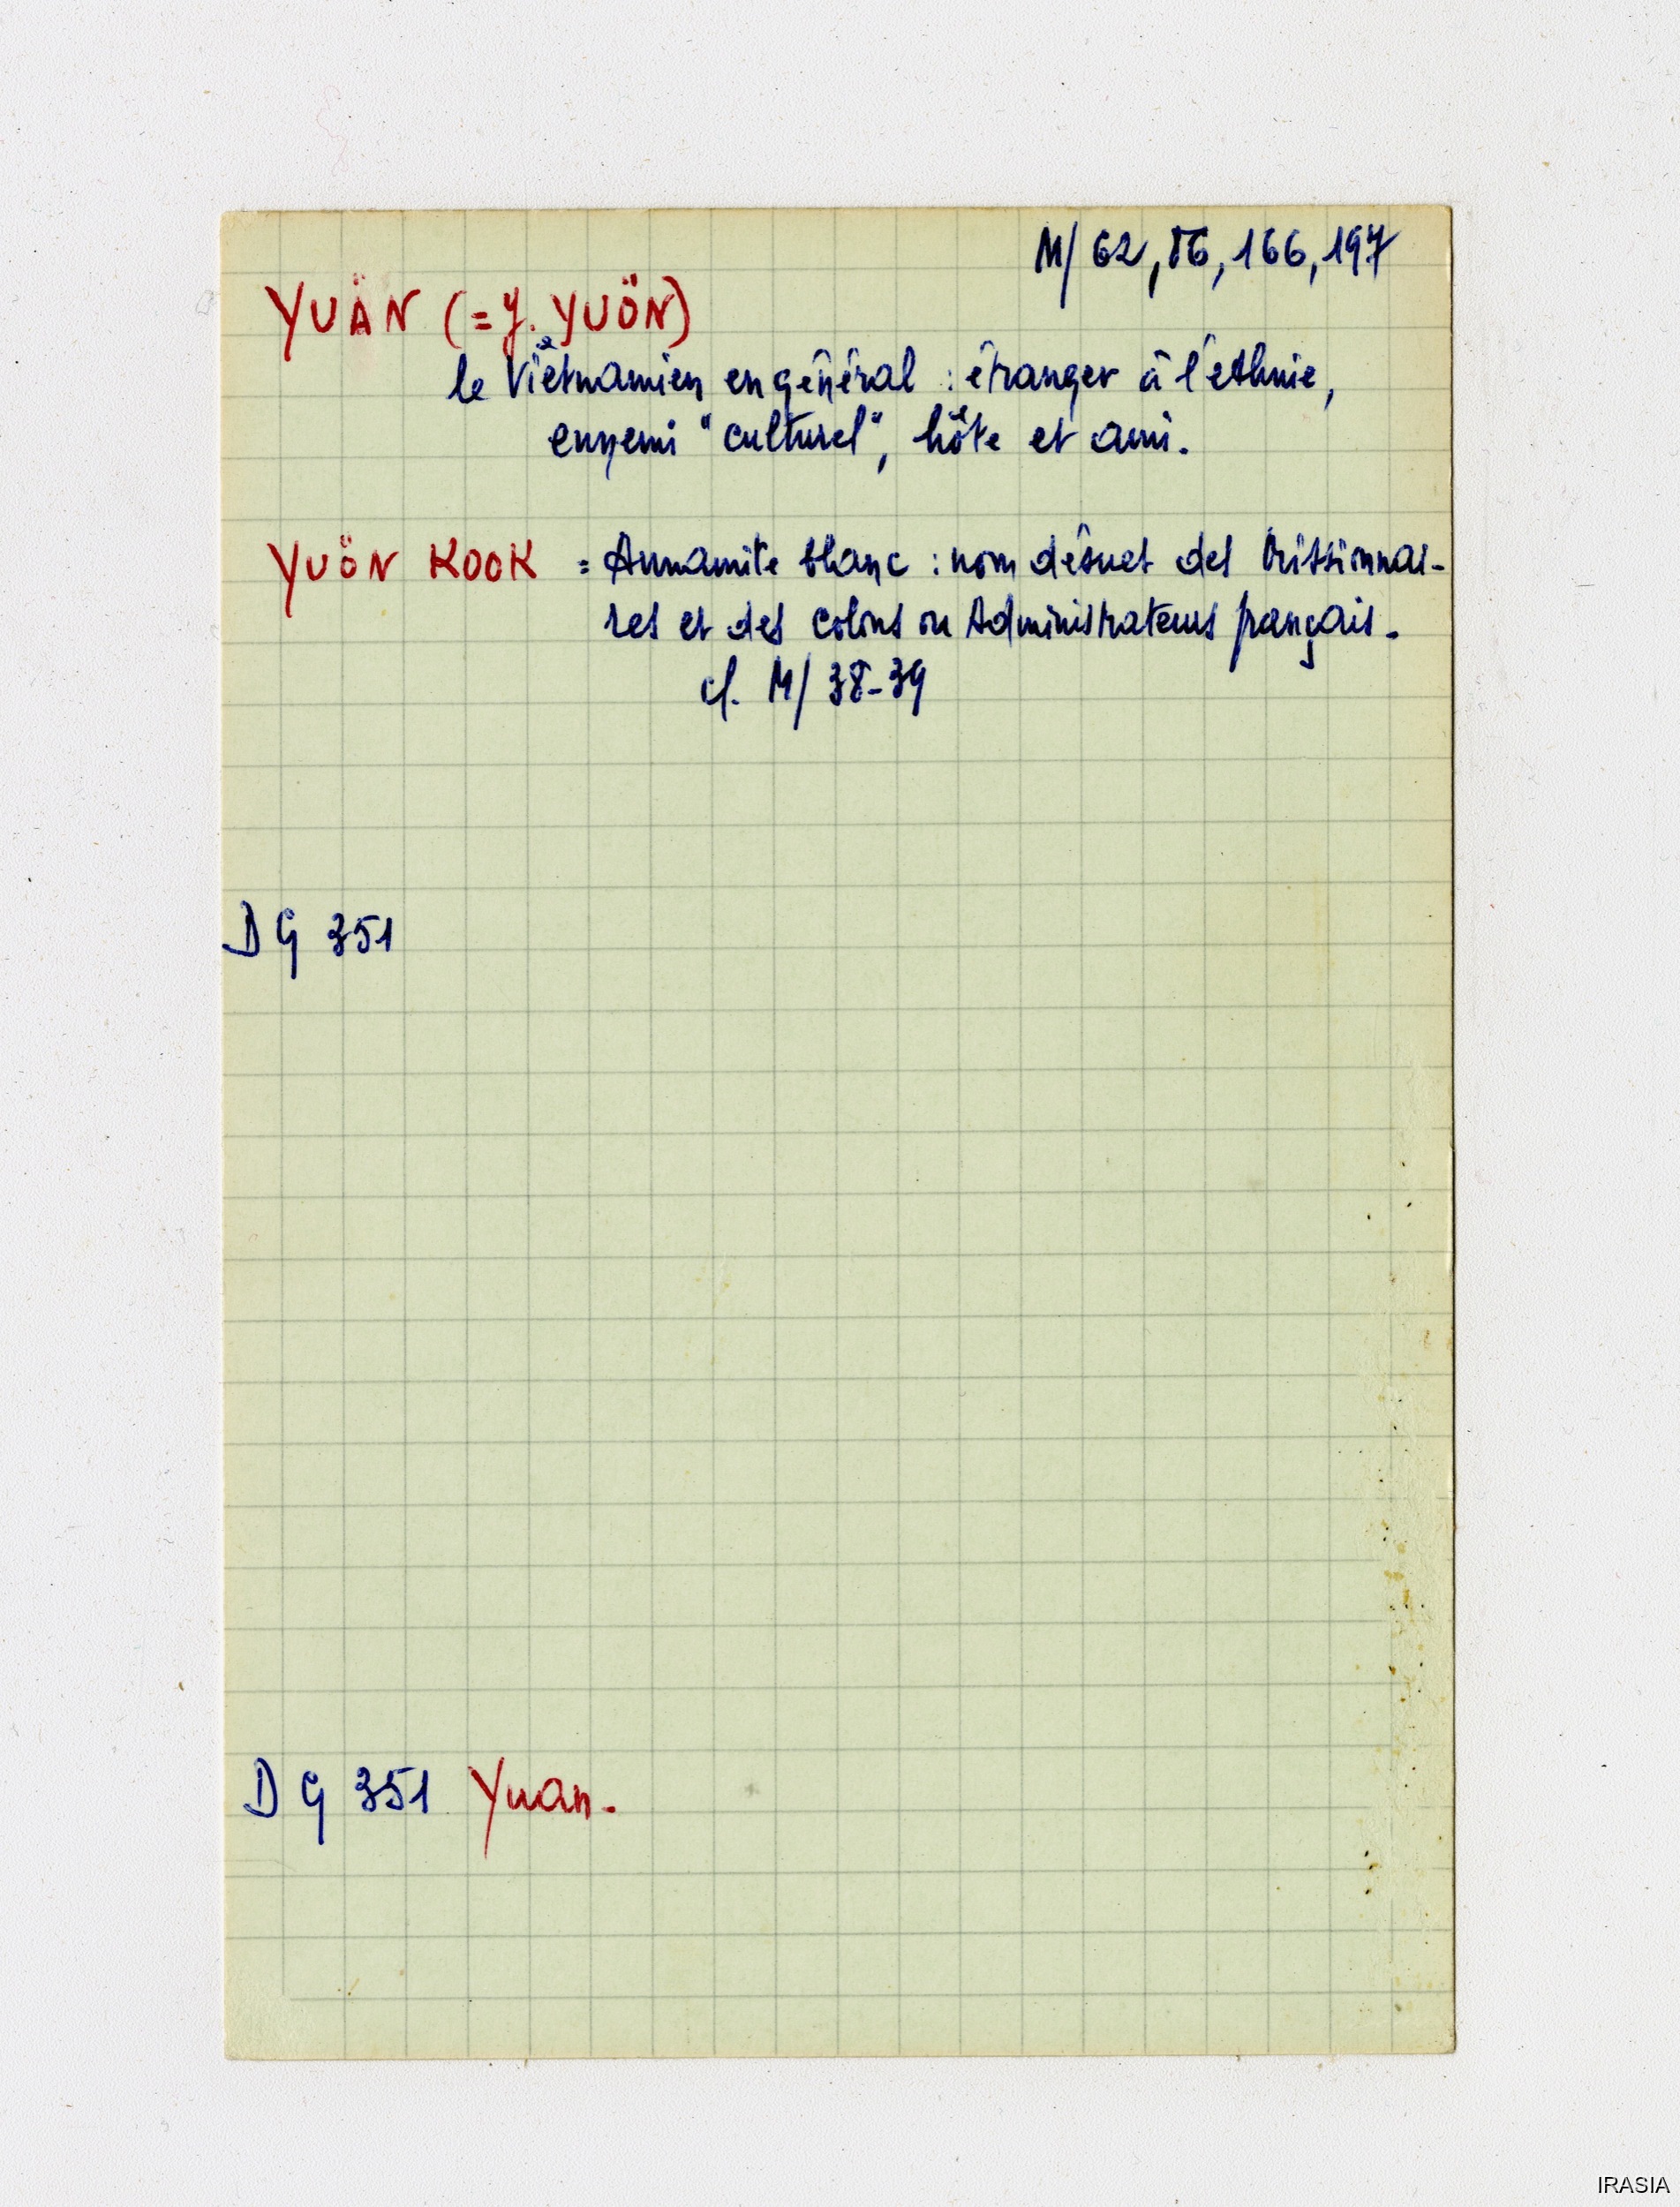 M/ 62, 86, 166, 197
YUÄN (= J. YUÖN)
le Viëtnamien en général : étranger à l'ethnie,
ennemi "culturel", hôte et ami.
YUÖN KOOK = Annamite blanc : nom désuet des Missionnai-
res et des colons ou Administrateurs français.
cf. M/ 38-39
DG 351
DG 351 Yuan.
IRASIA